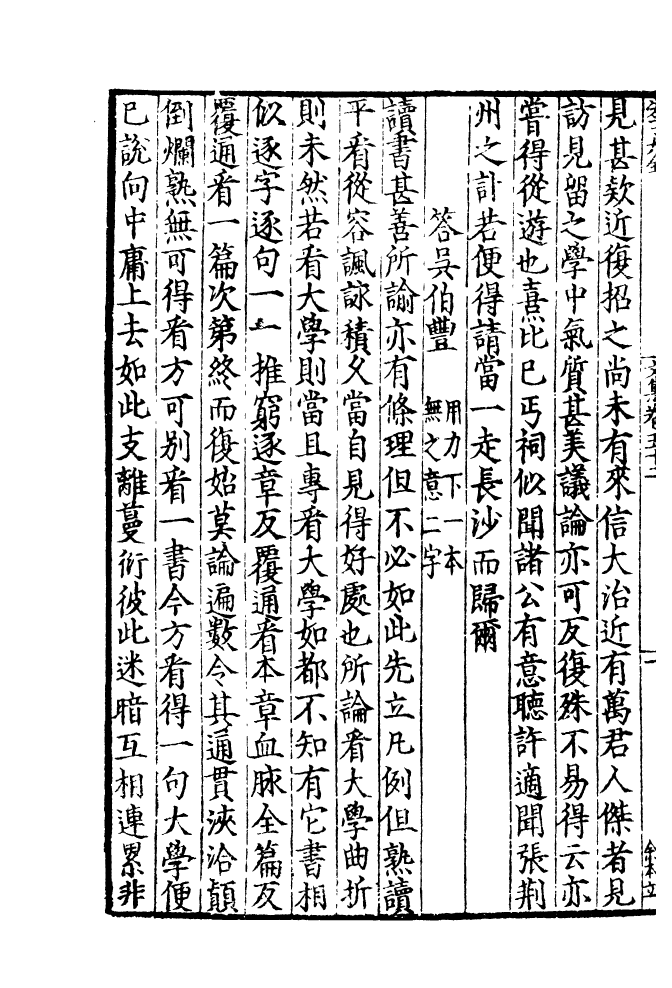 文集卷五十二
見甚欵近復招之尚未有來信大治近有萬君人傑者見
訪見留之學中氣質甚美議論亦可反復殊不易得云亦
嘗得從遊也熹比已丐祠似聞諸公有意聽許適聞張荆
州之計若便得請當一走長沙而歸爾
答吳伯豐
用力下一本
無之意二字
讀書甚善所諭亦有條理但不必如此先立凡例但熟讀
平看從容諷詠積久當自見得好處也所論看大學曲折
則未然若看大學則當且專看大學如都不知有它書相
似逐字逐句一一推窮逐章反覆通看本章血脉全篇反
覆通看一篇次第終而復始莫論遍數令其通貫浹洽顛
倒爛熟無可得看方可别看一書今方看得一句大學便
已說向中庸上去如此支離蔓衍彼此迷暗互相連累非